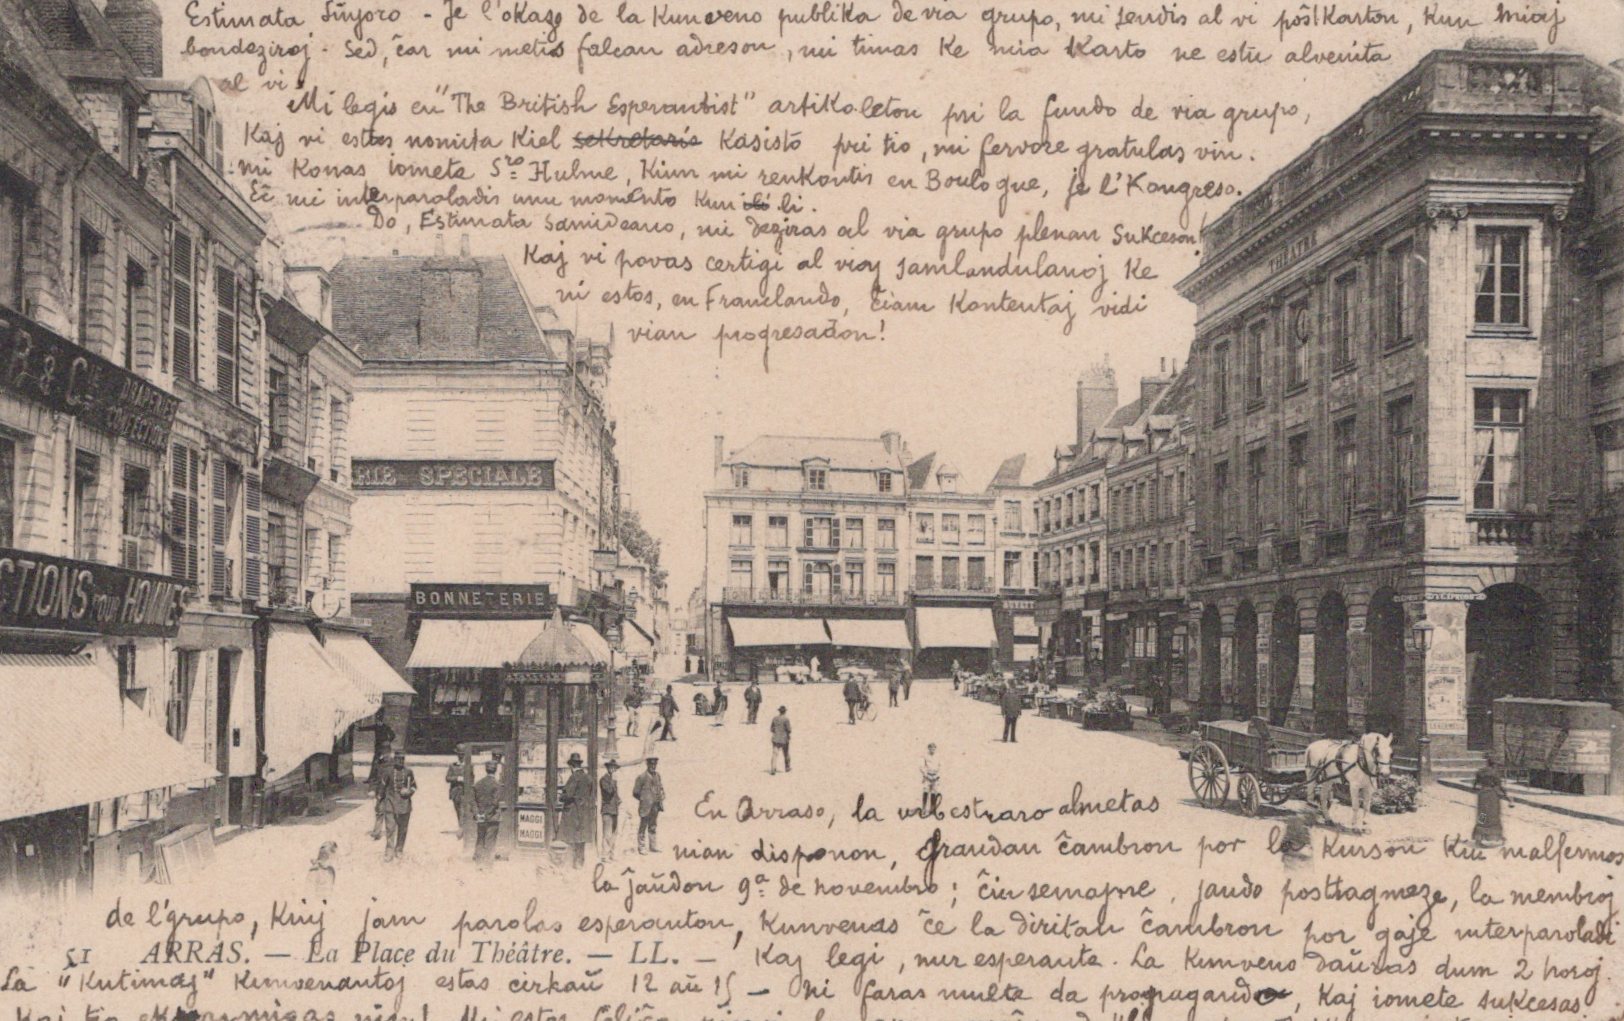 Estimata Sinjoro - Je l'okazo de la Kunveno publika de via grupo, mi sendis al vi poŝtkarton, kun miaj
bondeziroj. Sed, ĉar mi metis falsan adreson, mi timas ke mia karto ne estu alvenita
al vi.
Mi legis en "The British Esperantist" artikoleton pri la fundo de via grupo,
Kaj vi estas nomita kiel sekretario kasisto pri tio, mi fervore gratulas vin.
mi konas iometa Sro Hulme, kiun mi renkontis en Boulogne, je l'Kongreso.
Eĉ mi interparoladis unu momento kun li.
Do, Estimata samideano, mi deziras al via grupo plenan sukceson!
Kaj vi povas certigi al viaj samlandulanoj ke
ni estos, en Franclando, ĉiam kontentaj vidi
vian progresadon!
B & Cie DRAPERIES
CONFECTIONS
RIE SPECIALE
CTIONS POUR HOMMES
BONNETERIE
BUVETT
THEATRE
MAGGI
MAGGI
En Arraso, la urbestraro almetas
nian disponon, grandan ĉambron por la kurson kiu malfermos
la ĵaŭdon 9a de novembro; ĉiu semajne, ĵaudo posttagmeze, la membroj
de l'grupo, kiuj jam parolas esperanton, kunvenas ĉe la diritan ĉambron por gaje interparoladi
51 ARRAS. — La Place du Théâtre. — LL. — Kaj legi, nur esperante. La Kunveno daŭras dum 2 horoj.
La "Kutimaj" Kunvenantoj estas cirkaŭ 12 aŭ 15 — Ni faras multe da propagando, kaj iomete sukcesas
Kaj tio